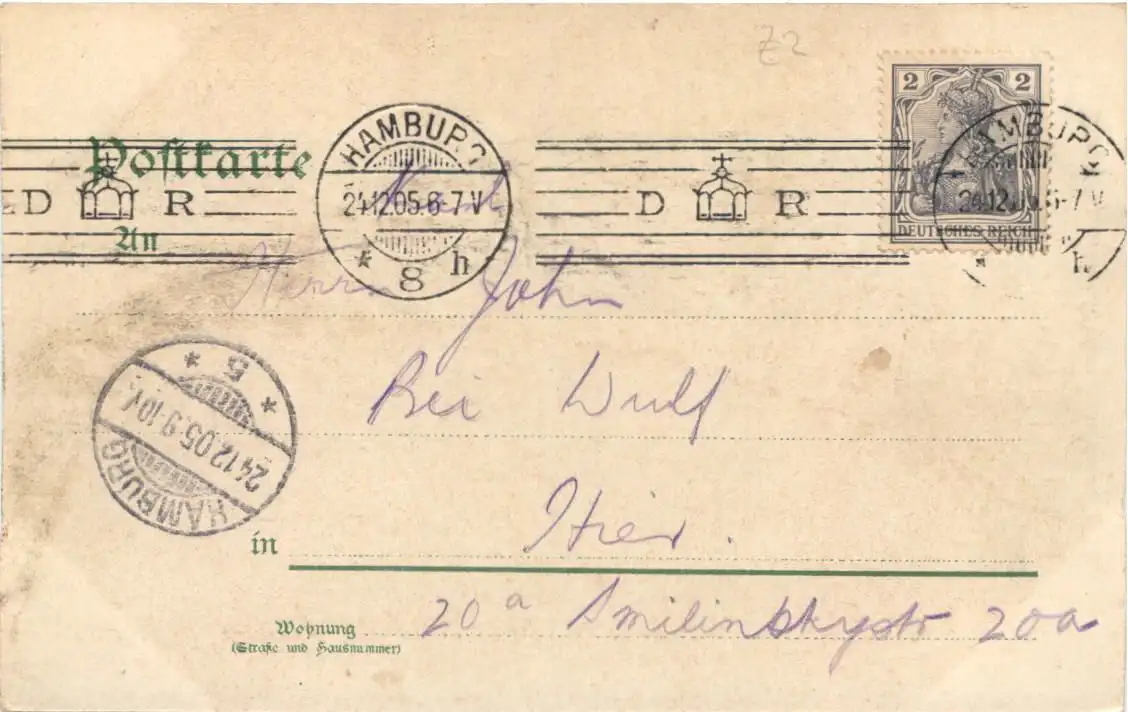 Z2
2 2
Postkarte
HAMBURG
HAMBURG
D R
D R
24.12.05.6-7V
24.12.05.6-7V
An
DEUTSCHES REICH
* 8 h
* h
Herrn John
* 5 *
Bei Wulf
24.12.05.9-10V.
HAMBURG
Hier.
in
20a Smilinskystr 20a
Wohnung
(Straße und Hausnummer)